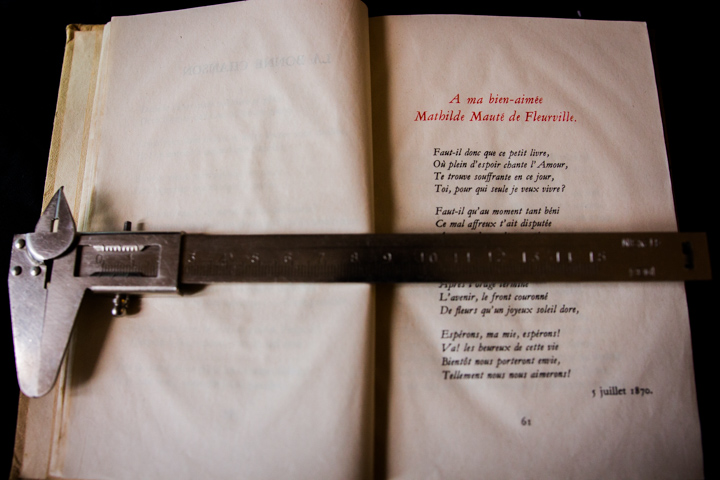 LA BONNE CHANSON
A ma bien-aimée
Mathilde Mauté de Fleurville.
Faut-il donc que ce petit livre,
Où plein d'espoir chante l'Amour,
Te trouve souffrante en ce jour,
Toi, pour qui seule je veux vivre?
Faut-il qu'au moment tant béni
Ce mal affreux t'ait disputée
7 8 9 10 11 12 13 14 15
L'avenir, le front couronné
De fleurs qu'un joyeux soleil dore,
Espérons, ma mie, espérons!
Va! les heureux de cette vie
Bientôt nous porteront envie,
Tellement nous nous aimerons!
5 juillet 1870.
61